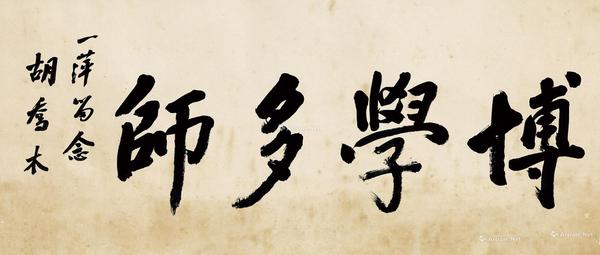 博學多師
一萍留念
胡喬木
Artron.Net
Artron.Net